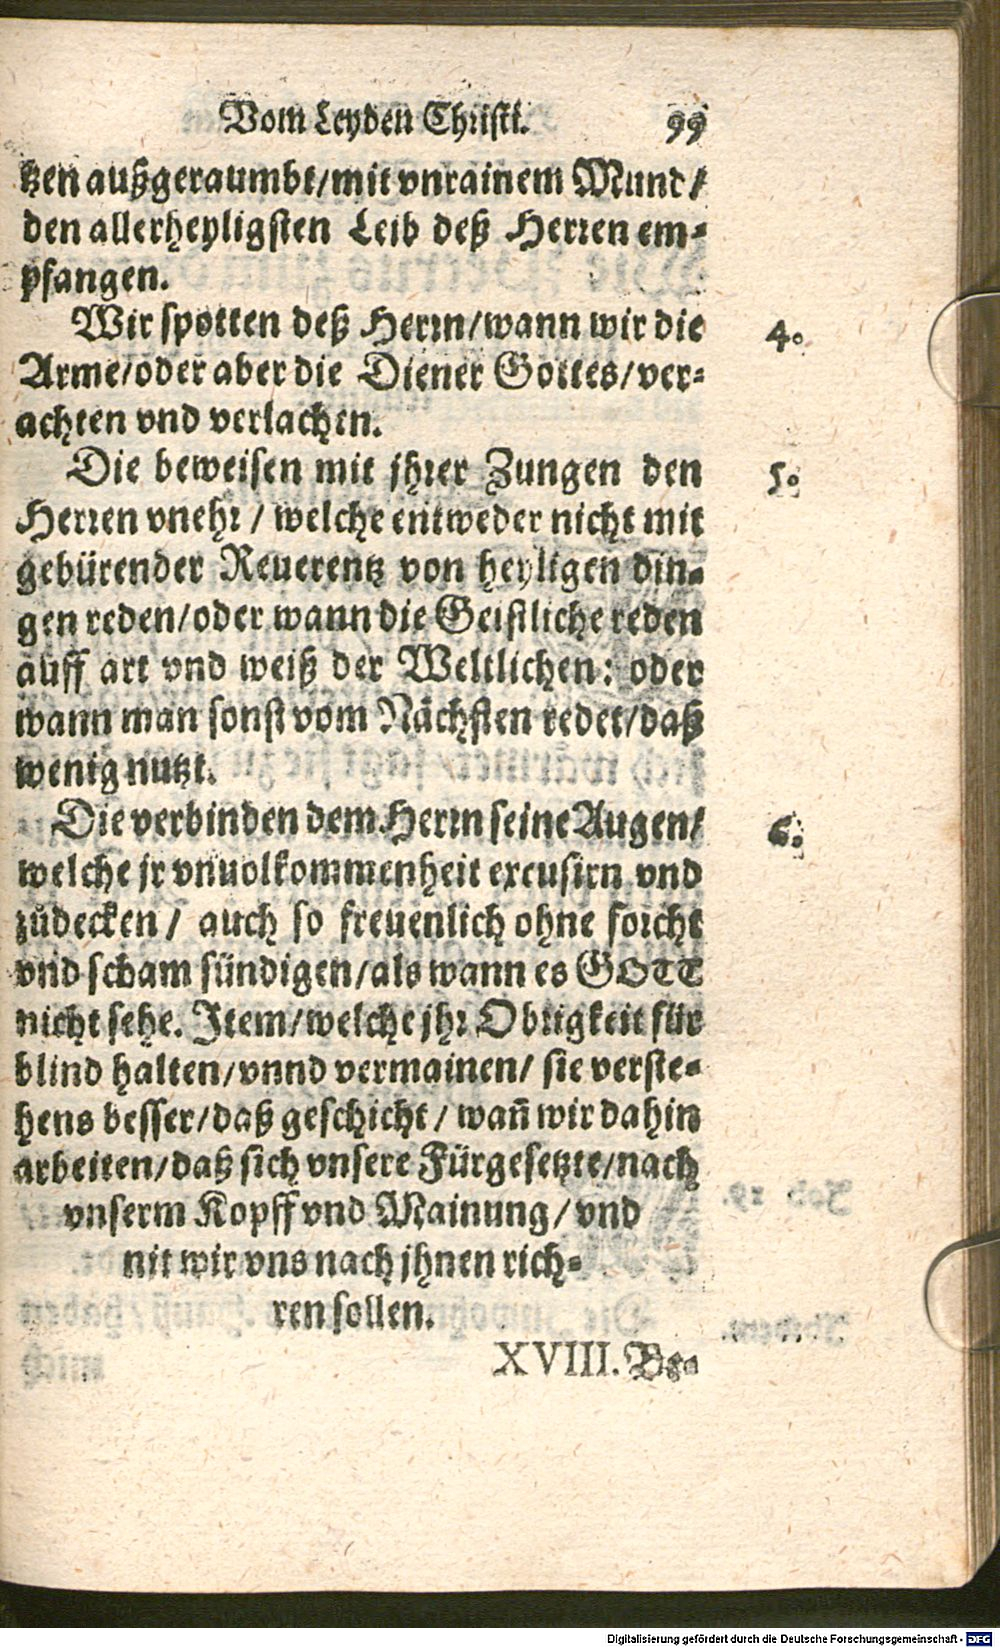 Vom Leyden Christi. 99
tzen außgeraumbt/mit vnrainem Mund/
den allerheyligsten Leib deß Herren em-
pfangen.
Wir spotten deß Herrn/wann wir die 4.
Arme/oder aber die Diener Gottes/ver-
achten vnd verlachen.
Die beweisen mit jhrer Zungen den 5.
Herren vnehr/ welche entweder nicht mit
gebürender Reuerentz von heyligen din-
gen reden/oder wann die Geistliche reden
auff art vnd weiß der Weltlichen: oder
wann man sonst vom Nächsten redet/daß
wenig nutzt.
Die verbinden dem Herrn seine Augen/ 6.
welche jr vnuolkommenheit excusirn vnd
zůdecken/ auch so freuenlich ohne forcht
vnd scham sündigen/als wann es GOTT
nicht sehe. Item/welche jhr Obrigkeit für
blind halten/vnnd vermainen/ sie verste-
hens besser/daß geschicht/ wañ wir dahin
arbeiten/daß sich vnsere Fürgesetzte/nach
vnserm Kopff vnd Mainung/ vnd
nit wir vns nach jhnen rich-
ren sollen.
XVIII. Be-
Digitalisierung gefördert durch die Deutsche Forschungsgemeinschaft - DFG